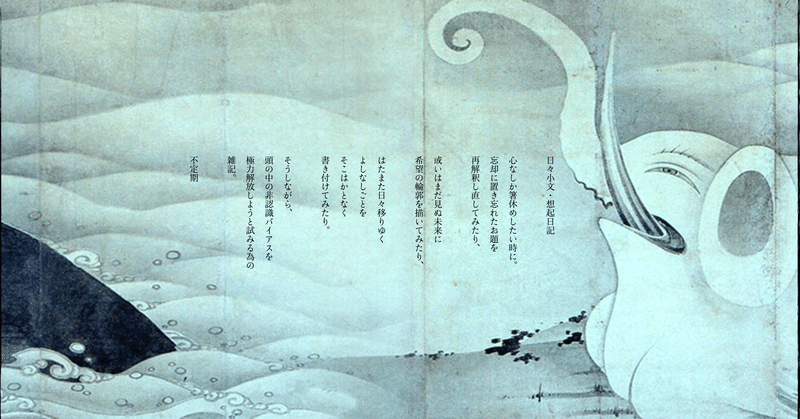 日々小文・想起日記
心なしか箸休めしたい時に。
忘却に置き忘れたお題を
再解釈し直してみたり、
或いはまだ見ぬ未来に
希望の輪郭を描いてみたり、
はたまた日々移りゆく
よしなしごとを
そこはかとなく
書き付けてみたり。
そうしながら、
頭の中の非認識バイアスを
極力解放しようと試みる為の
雑記。
不定期